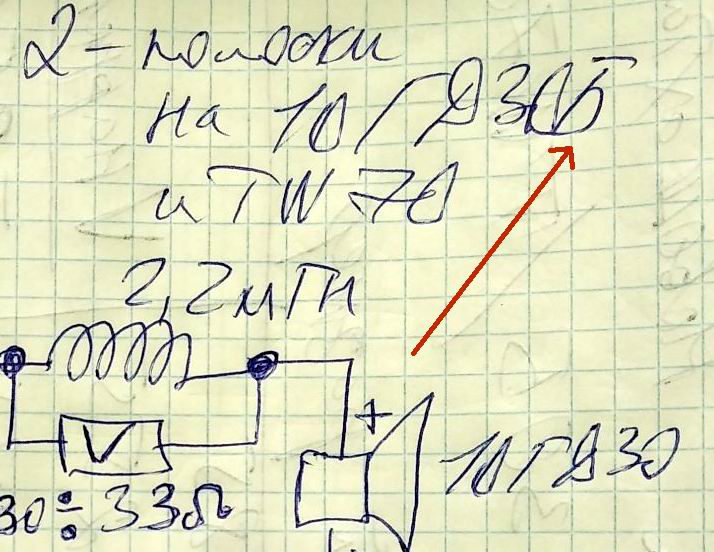 2-полоски
на 10ГД30Б
и TW 70
2,2мГн
V
+
10ГД30
30÷33Ω